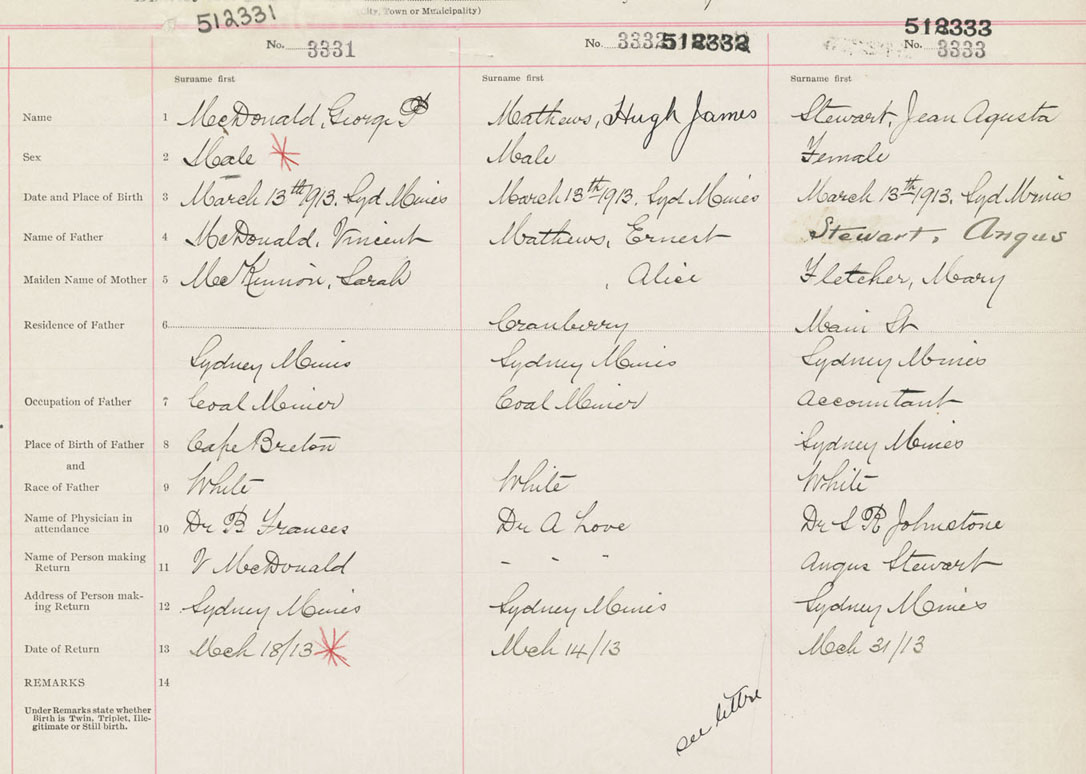 (City, Town or Municipality)
512331
No. 3331
No. 3332 512332
512333
No. 3333
Surname first
Surname first
Surname first
Name 1 McDonald, George P Mathews, Hugh James Stewart, Jean Agusta
Sex 2 Male Male Female
Date and Place of Birth 3 March 13th 1913. Syd Mines March 13th 1913. Syd Mines March 13th 1913. Syd Mines
Name of Father 4 McDonald, Vincent Mathews, Ernest Stewart, Angus
Maiden Name of Mother 5 McKinnon, Sarah , Alice Fletcher, Mary
Residence of Father 6 Cranberry Main St
Sydney Mines Sydney Mines Sydney Mines
Occupation of Father 7 Coal Miner Coal Miner Accountant
Place of Birth of Father 8 Cape Breton Sydney Mines
and
Race of Father 9 White White White
Name of Physician in
attendance 10 Dr B Frances Dr A Love Dr S R Johnstone
Name of Person making
Return 11 V McDonald - - - Angus Stewart
Address of Person mak-
ing Return 12 Sydney Mines Sydney Mines Sydney Mines
Date of Return 13 Mch 18/13 Mch 14/13 Mch 31/13
REMARKS 14
Under Remarks state whether
Birth is Twin, Triplet, Ille-
gitimate or Still birth.
see letter